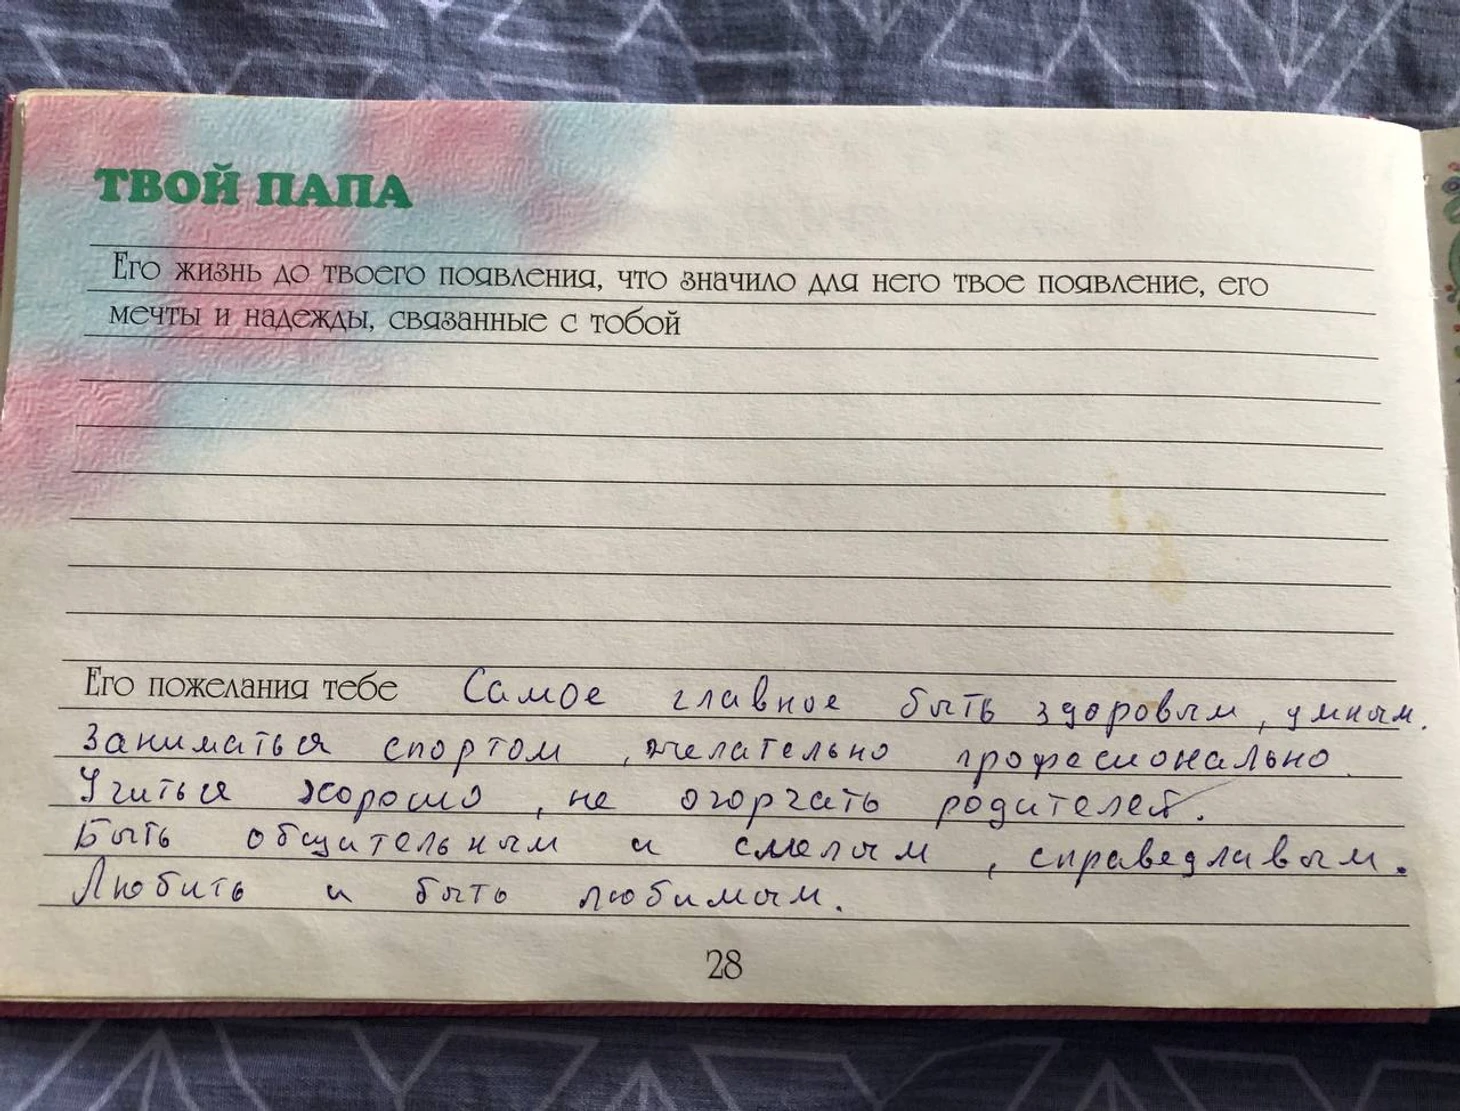 ТВОЙ ПАПА
Его жизнь до твоего появления, что значило для него твое появление, его
мечты и надежды, связанные с тобой
Его пожелания тебе Самое главное быть здоровым, умным.
Заниматься спортом, желательно професионально.
Учиться хорошо, не огорчать родителей.
Быть общительным и смелым, справедливым.
Любить и быть любимым.
28